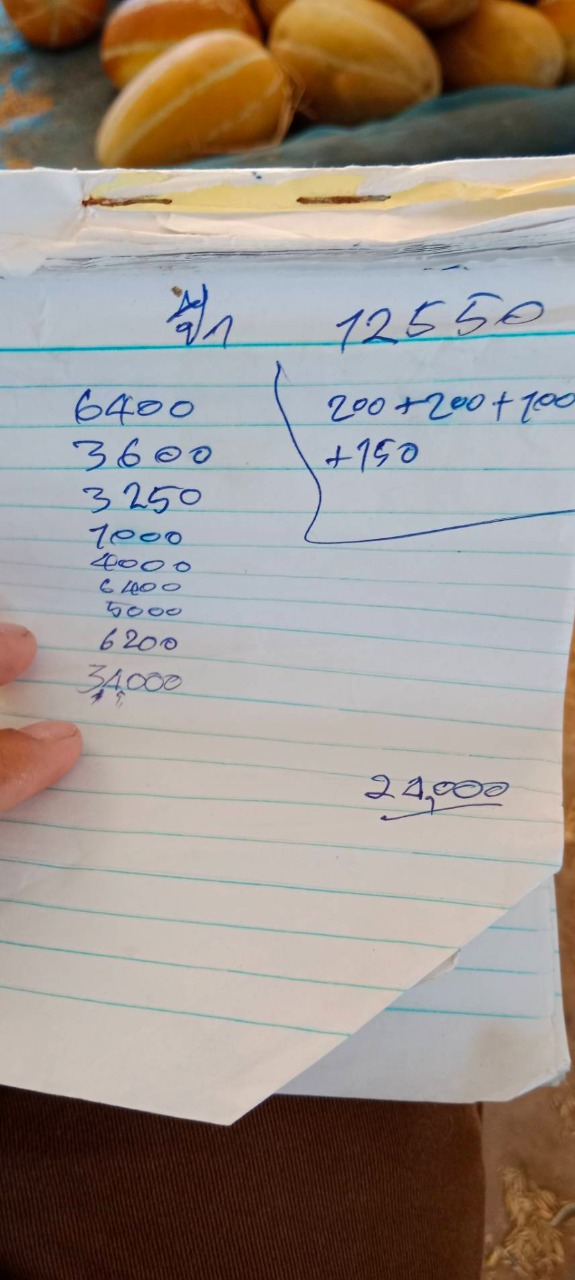 12550
6400
3600
3250
1000
4000
6400
5000
6200
34,000
200+200+100
+150
24,000